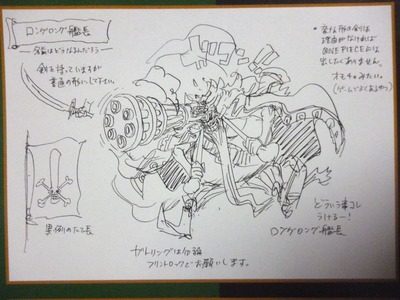 ロングロング艦長
剣を持っていますが
普通の形にして下さい。
異例のたて長
ドドンッ
• 変な形の剣は
理由がなければ
ONE PIECEには
出したくありません。
オモチャみたい。
(ゲームでよくあるやつ)
どういう事コレ
うけるー!
ロングロング艦長
ガトリングは勿論
フリントロックでお願いします。